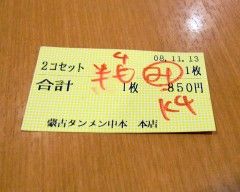 08.11.13
2コセット 1枚
合計 1枚 850円
4
K4
蒙古タンメン中本 本店